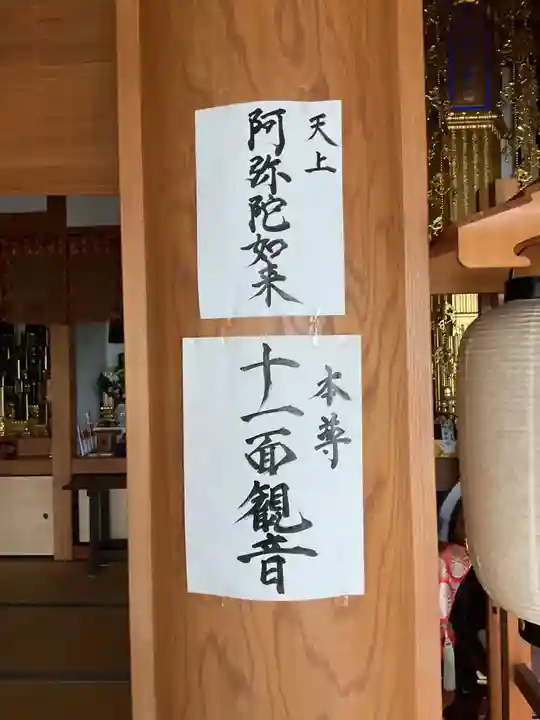 天上
阿弥陀如来
本尊
十一面観音